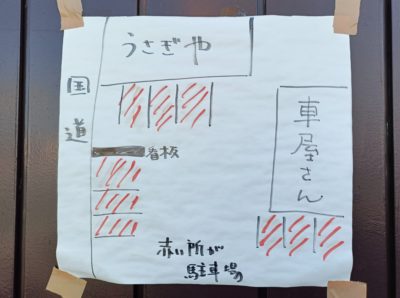 うさぎや
国道
車屋さん
看板
赤い所が
駐車場